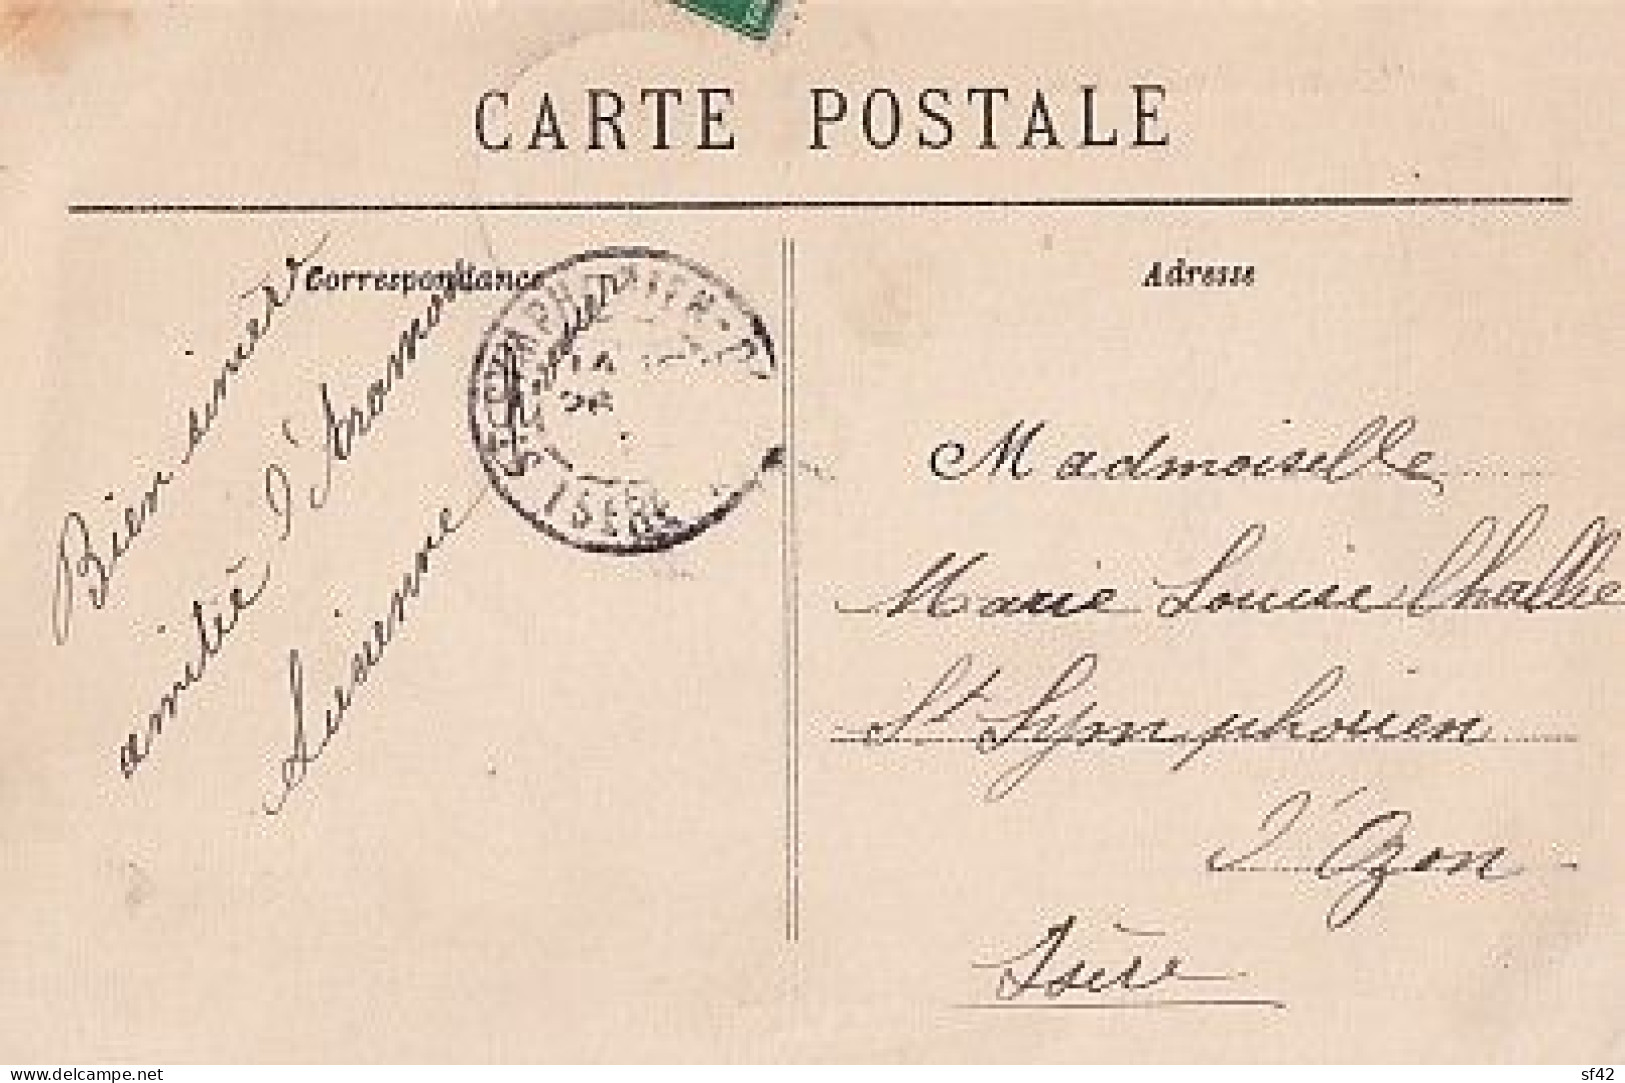 CARTE POSTALE
Correspondance
Bien sincère
amitié d'Aramon
Lucienne
ISÈRE
Adresse
Madmoiselle
Marie Louise Challie
St Symphorien
d'Ozon
Isère
delcampe.net
sf42